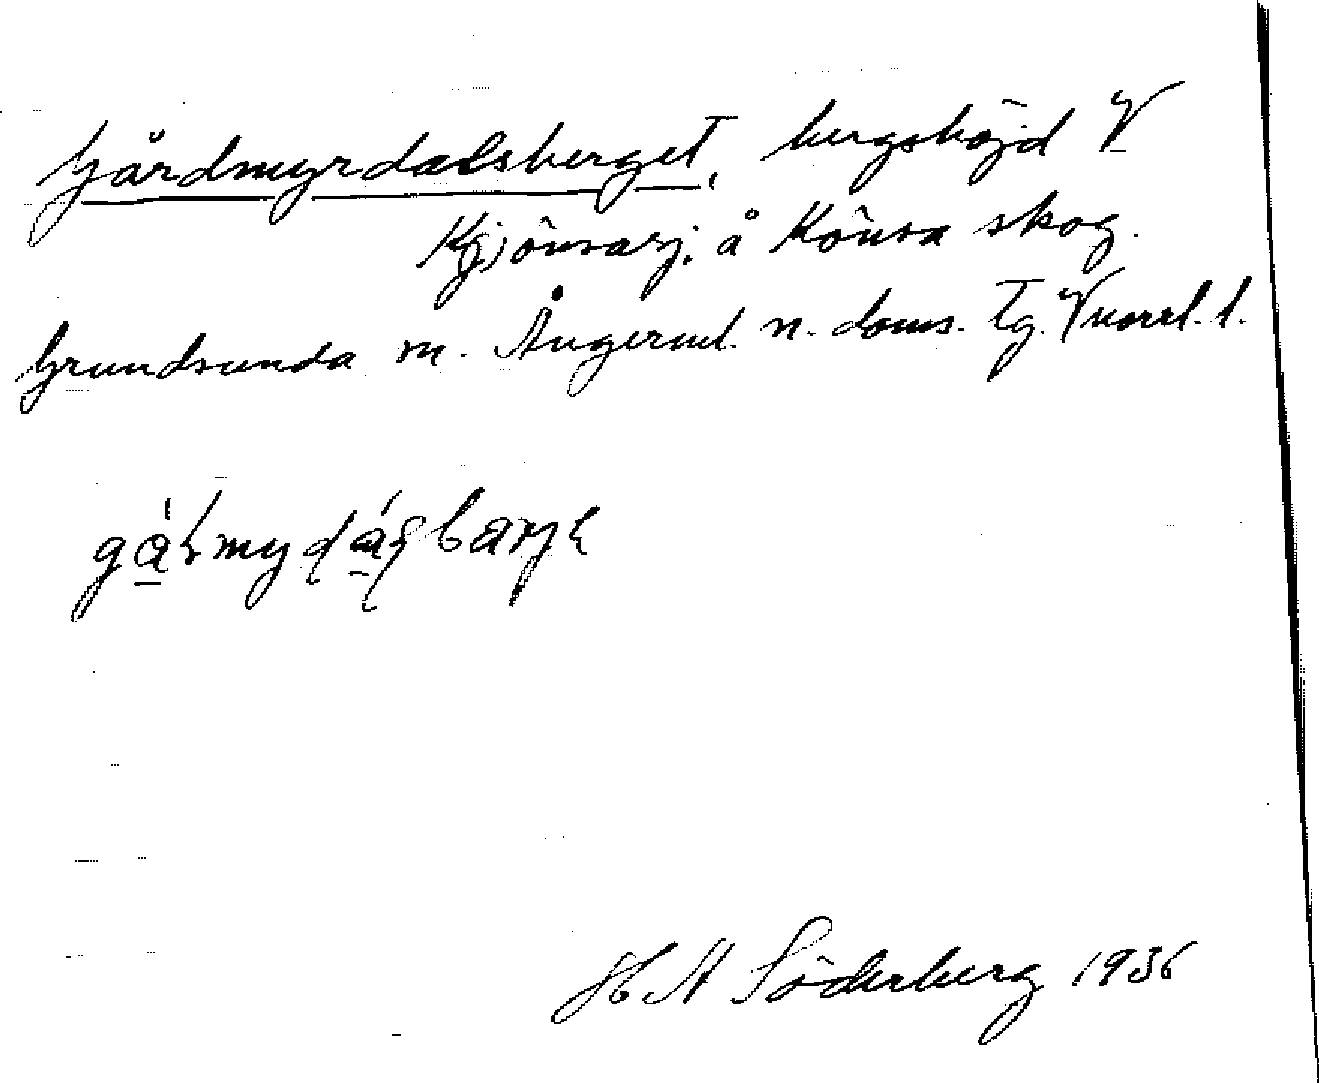 Gårdmyrdalsberget, bergshöjd V
Kjönsarj. å Könsa skog.
Grundsunda sn. Ångerml. n. doms. tg. Vnorrl. l.
H A Söderberg 1936